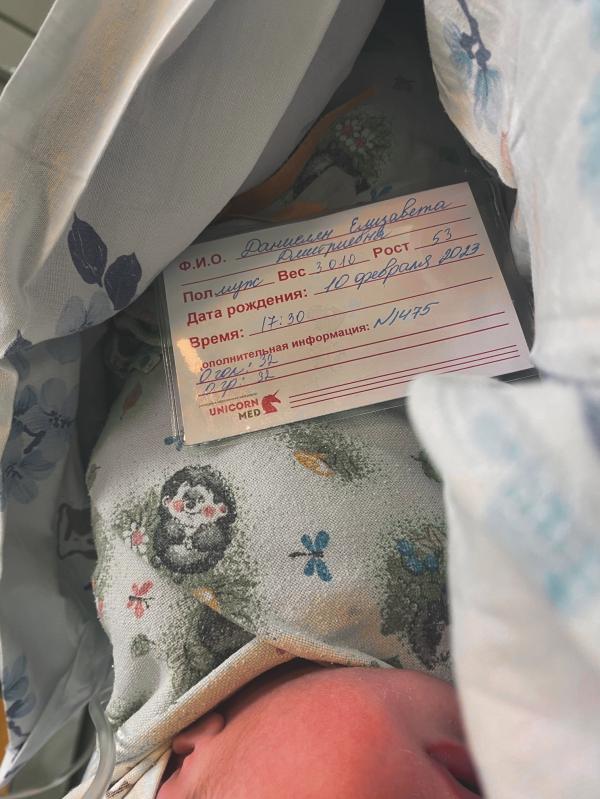 Ф.И.О. Даниелян Елизавета
Дмитриевна
Пол муж Вес 3010 Рост 53
Дата рождения: 10 февраля 2023
Время: 17:30
Дополнительная информация: N1475
Огол: 32
Огр: 32
UNICORN
MED